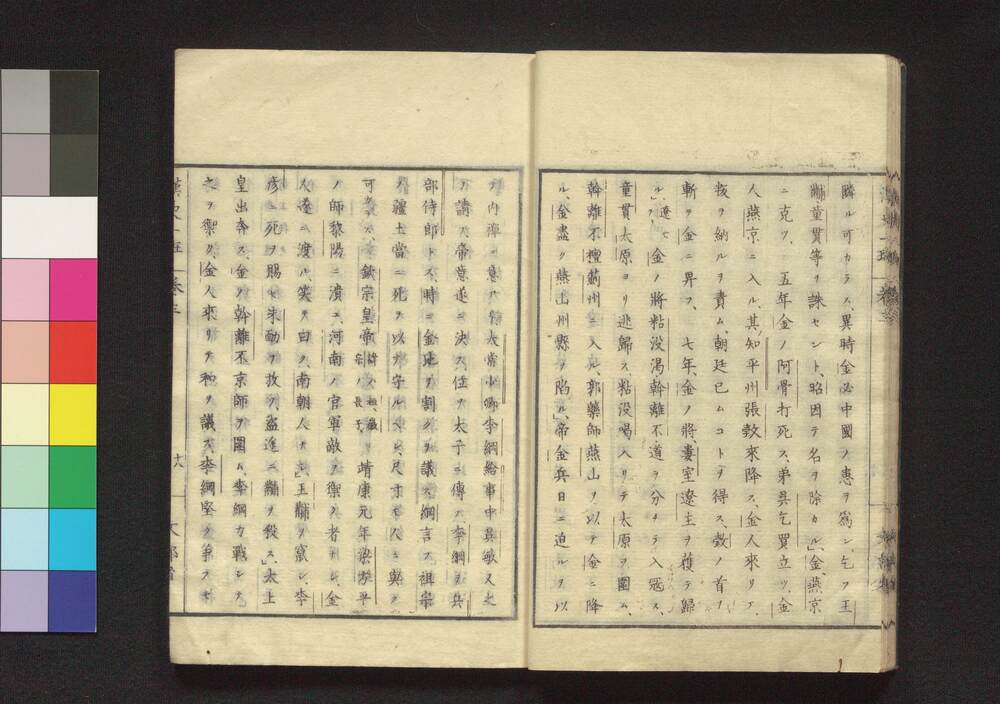 隣ル可カラス、異時金必中國ノ患ヲ爲シ、乞フ王
黼童貫等ヲ誅セント、昭因テ名ヲ除カル、金燕京
ニ克ツ、五年金ノ阿骨打死ス、弟吳乞買立ツ、金
人燕京ニ入ル、其知平州張敦來降ス、金人來リテ、
叛ヲ納ルヲ責ム、朝廷已ムコトヲ得ス、敦ノ首ヲ
斬ヲ金ニ畀フ、七年、金ノ將婁室遼主ヲ獲テ歸
ル、遼亡フ 金ノ將粘没渴幹離不道ヲ分チテ入冦ス、
童貫太原ヨリ逃歸ス、粘没喝入リテ太原ヲ圍ム、
幹離不檀薊州ニ入ル、郭藥師燕山ヲ以テ金ニ降
ル、金盡ク燕山州縣ヲ陷ル、帝金兵日ニ迫ルヲ以
テ内禪 太常少卿李綱給事中吳敏又之
ヲ請ス、帝意遂ニ決ス、位ヲ太子ニ傳ス、李綱ヲ兵
部侍郎トス、時ニ金地ヲ割クヲ議ス、綱言ス祖宗
ノ疆土當ニ死ヲ以テ守ルヘシ、尺寸モ人ニ與ク
可カラス、欽宗皇帝 靖康元年梁方平
ノ師黎陽ニ潰ユ、河南ノ官軍敵ヲ禦ク者ナシ、金
人遂ニ渡ル、笑テ曰ク、南朝人ナシ、王黼ヲ竄シ、李
彦ニ死ヲ賜ヒ朱勔ヲ放ツ、盗進ニ黼ヲ殺ス、太上
皇出奔ス、金ノ幹離不京師ヲ圍ム、李綱力戰シテ
之ヲ禦ク、金人來リテ和ヲ議ス、李綱堅ク爭スモ